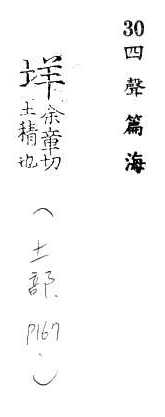 30四聲篇海
垟余章切
土精也
(土部. P167.)